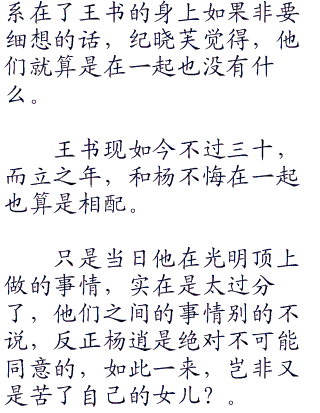 系在了王书的身上如果非要
细想的话，纪晓芙觉得，他
们就算是在一起也没有什
么。
王书现如今不过三十，
而立之年，和杨不悔在一起
也算是相配。
只是当日他在光明顶上
做的事情，实在是太过分
了，他们之间的事情别的不
说，反正杨逍是绝对不可能
同意的，如此一来，岂非又
是苦了自己的女儿？。